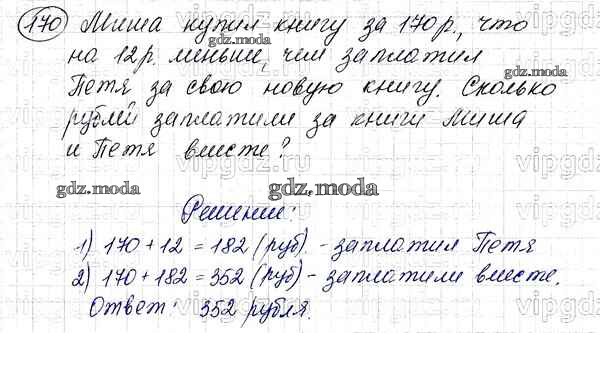 170 Миша купил книгу за 170 р., что
на 12 р. меньше, чем заплатил
Петя за свою новую книгу. Сколько
рублей заплатили за книги Миша
и Петя вместе?
Решение:
1) 170 + 12 = 182 (руб) - заплатил Петя
2) 170 + 182 = 352 (руб) - заплатили вместе.
Ответ: 352 рубля.
gdz.moda
gdz.moda
gdz.moda
gdz.moda
vipgdz.ru